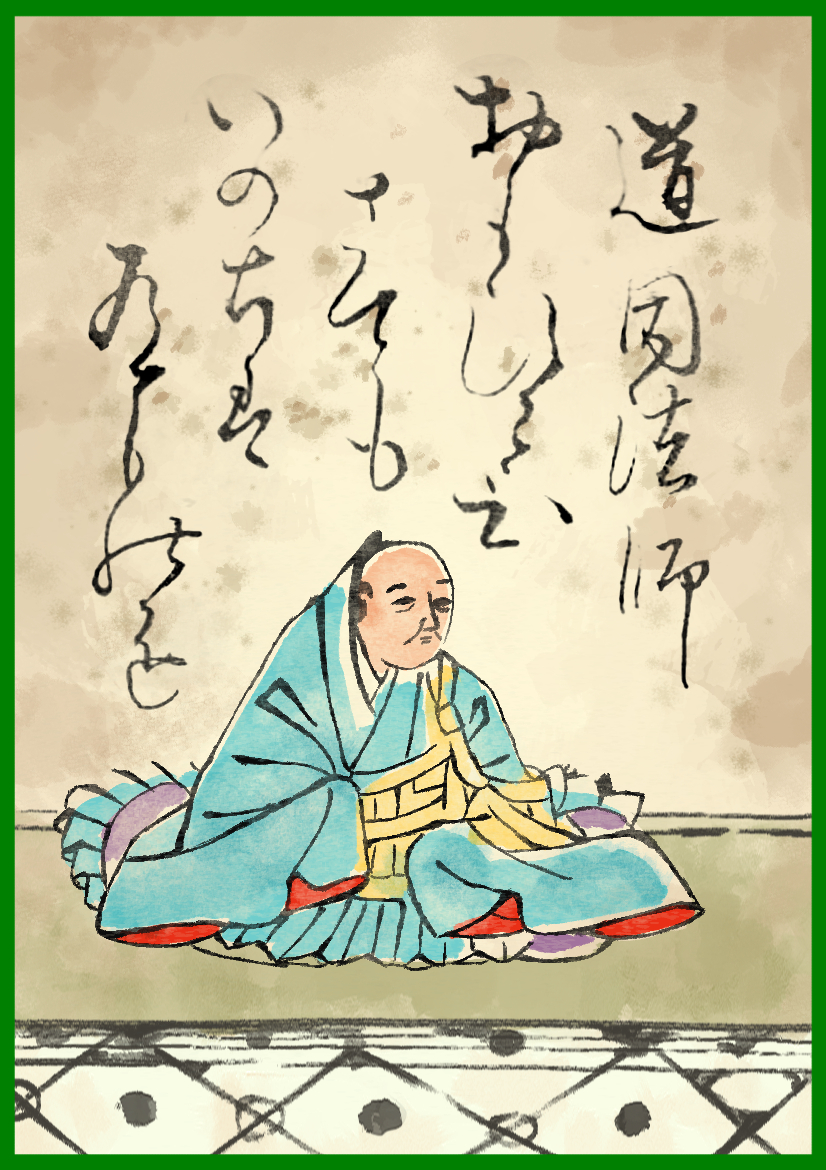 道因法師
おもひわび
さても
いのちは
あるものを